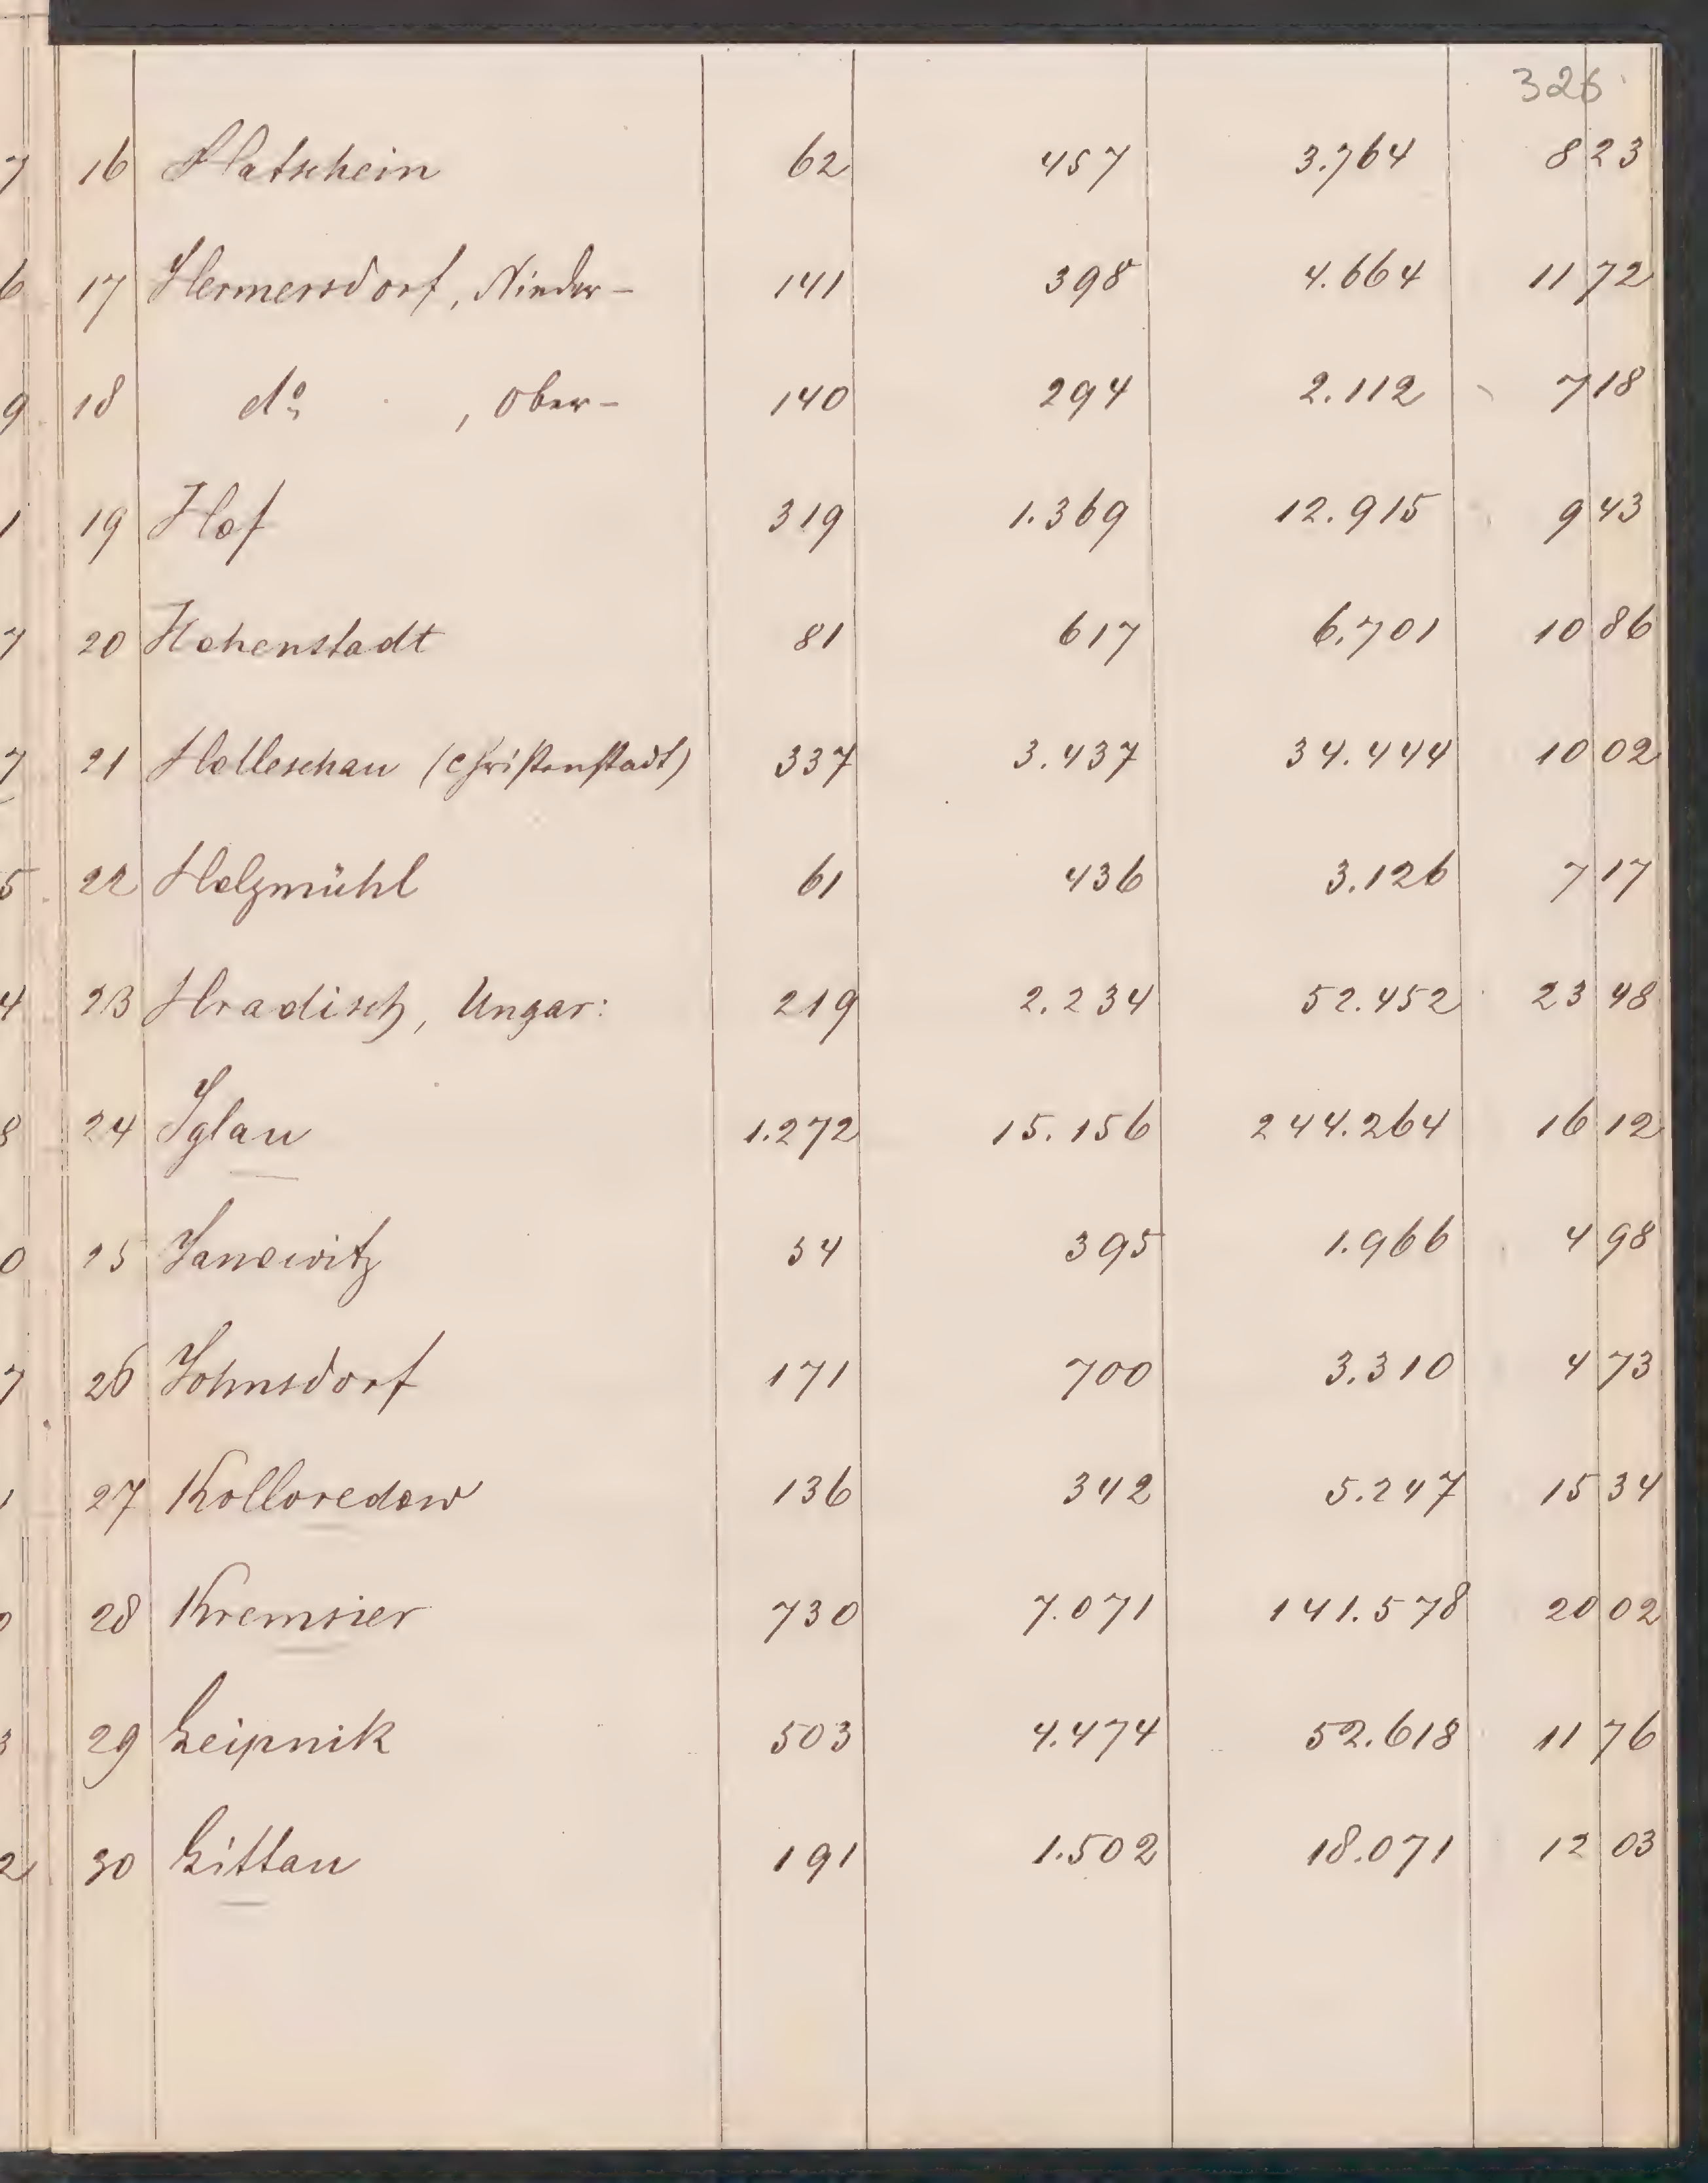 326
16 Hatschein 62 457 3.764 8 23
17 Hermersdorf, Nieder- 141 398 4.664 11 72
18 do , Ober- 140 294 2.112 7 18
19 Hof 319 1.369 12.915 9 43
20 Hohenstadt 81 617 6.701 10 86
21 Holleschau (Christenstadt) 337 3.437 34.444 10 02
22 Holzmühl 61 436 3.126 7 17
23 Hradisch, Ungar: 219 2.234 52.452 23 48
24 Iglau 1.272 15.156 244.264 16 12
25 Janowitz 54 395 1.966 4 98
26 Johnsdorf 171 700 3.310 4 73
27 Kolloredow 136 342 5.247 15 34
28 Kremsier 730 7.071 141.578 20 02
29 Leipnik 503 4.474 52.618 11 76
30 Littau 191 1.502 18.071 12 03